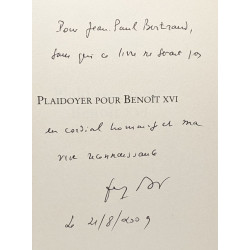 Pour Jean-Paul Bertrand,
sans qui ce livre ne serait pas
PLAIDOYER POUR BENOÎT XVI
en cordial hommage et ma
vive reconnaissance
Le 21/8/2009